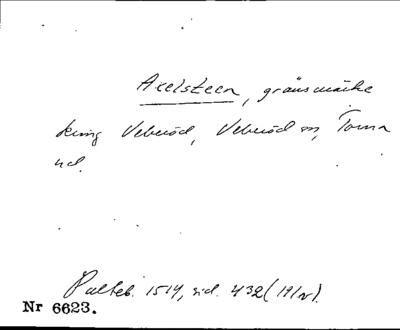 Axelsteen, gränsmärke
kring Veberöd, Veberöd sn, Torna
hd.
Palteb. 1514, sid. 432 (19/v).
Nr 6623.